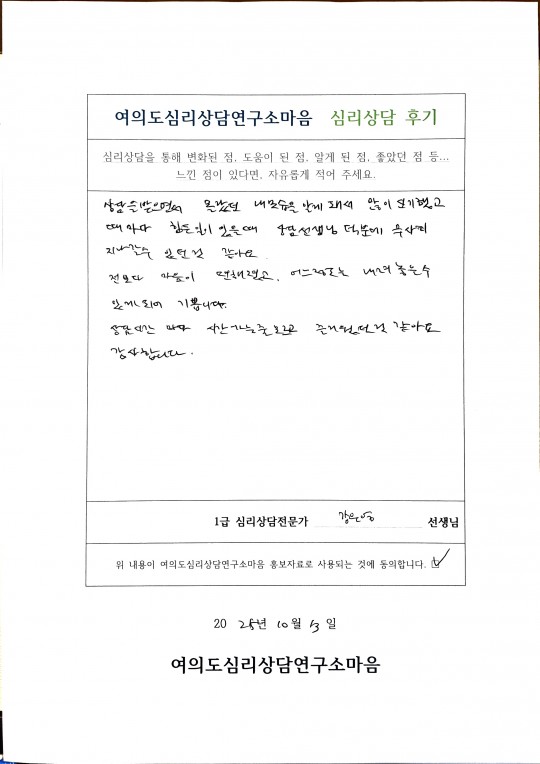 여의도심리상담연구소마음 심리상담 후기
심리상담을 통해 변화된 점, 도움이 된 점, 알게 된 점, 좋았던 점 등...
느낀 점이 있다면, 자유롭게 적어 주세요.
상담을 받으면서 몰랐던 내 모습을 알게 돼서 많이 신기했고
때마다 힘든일이 있을때 상담선생님 덕분에 무사히
지나갈수 있던것 같아요.
전보다 마음이 편해졌고, 어느정도는 내려 놓는수
있게 되어 기쁩니다.
상담시간 마다 시간가는줄 모르고 즐거웠던것 같아요
감사합니다.
1급 심리상담전문가 강은영 선생님
위 내용이 여의도심리상담연구소마음 홍보자료로 사용되는 것에 동의합니다.
20 25년 10월 13일
여의도심리상담연구소마음